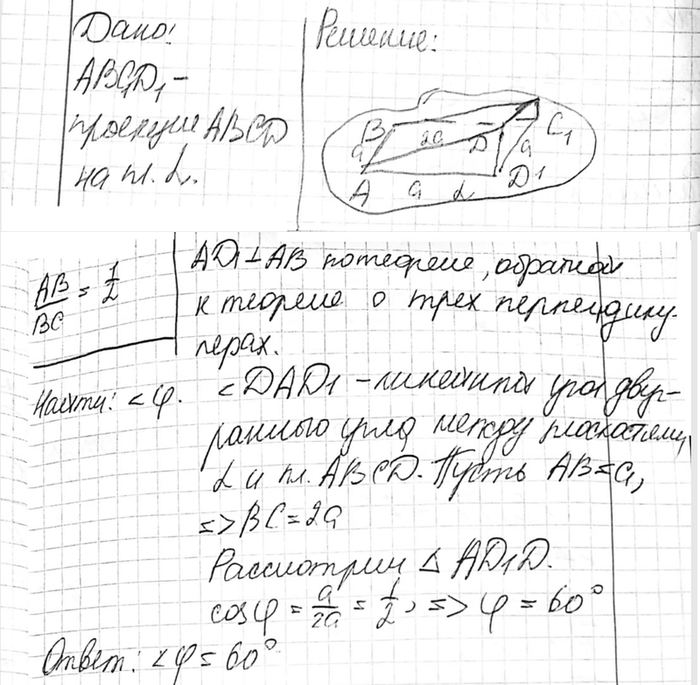 Дано:
ABC₁D₁ –
проекция ABCD
на пл. α.
Решение:
B
2a
D
C₁
a
a
A
a
α
D1
AB/BC = 1/2
Найти: <φ.
AD₁⊥AB по теореме, обратной
к теореме о трех перпендику-
лерах.
<DAD1 – линейный угол двуг-
ранного угла между плоскостями
α и пл. ABCD. Пусть AB=a,
=> BC=2a
Рассмотрим Δ AD1D.
cosφ = a/2a = 1/2, => φ = 60°
Ответ: <φ = 60°